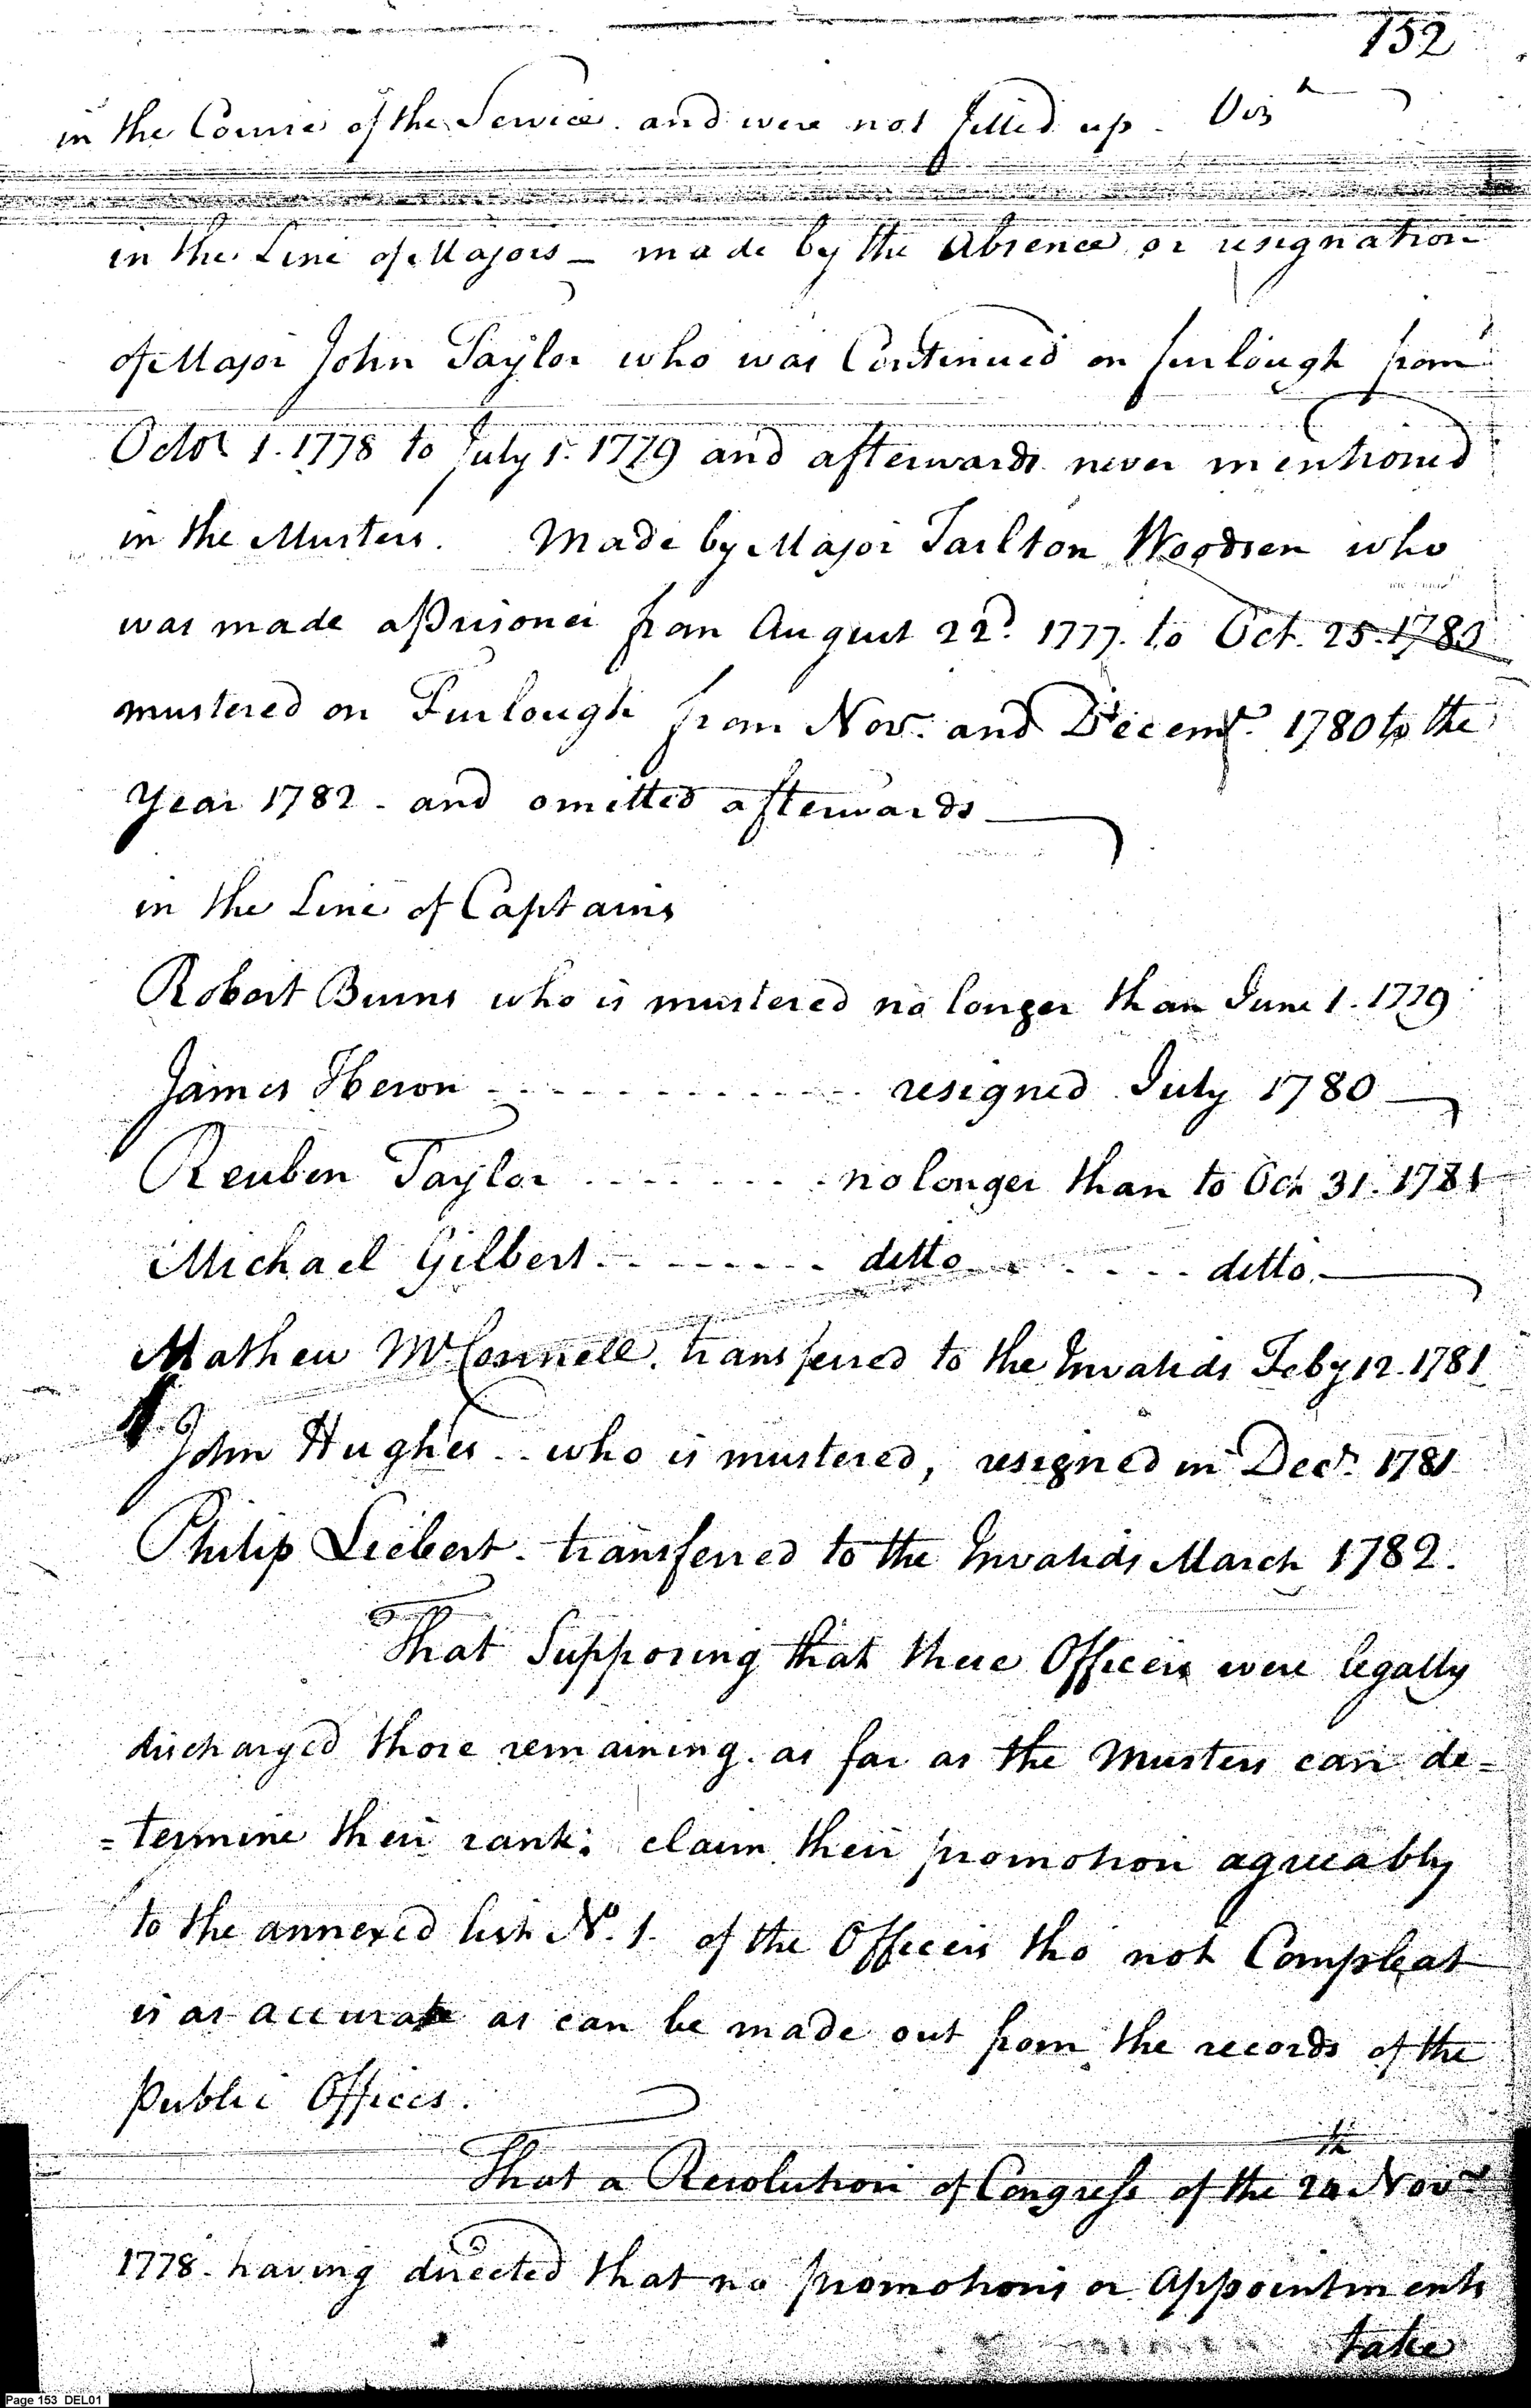 152
in the Course of the Service. and were not filled up. Viz
in the Line of Majors — made by the Absence or resignation
of Major John Taylor who was Continued on furlough from
Octor 1. 1778 to July 1. 1779 and afterwards never mentioned
in the Musters. Made by Major Tarlton Woodson who
was made a Prisoner from August 22d. 1777. to Oct. 25. 1780
mustered on Furlough from Nov. and Decemr. 1780 to the
Year 1782 - and omitted afterwards —
in the Line of Captains
Robert Burns who is mustered no longer than June 1. 1779
James Heron - - - - - - - - - - - - resigned July 1780 —
Reuben Taylor - - - - - - - - no longer than to Oct 31. 1781
Michael Gilbert - - - - - - - ditto - - - - - - ditto. —
Mathew McConnell. transferred to the Invalids Feby 12. 1781
John Hughes - - who is mustered, resigned in Decr. 1781
Philip Liebert - transferred to the Invalids March 1782.
That Supposing that these Officers were legally
discharged those remaining. as far as the Musters can de=
=termine their rank; claim their promotion agreeably
to the annexed list No. 1. of the Officers tho' not Compleat
is as accurate as can be made out from the records of the
Public Offices.
That a Resolution of Congress of the 24th Novr
1778. having directed that no promotions or Appointments
take
Page 153 DEL01